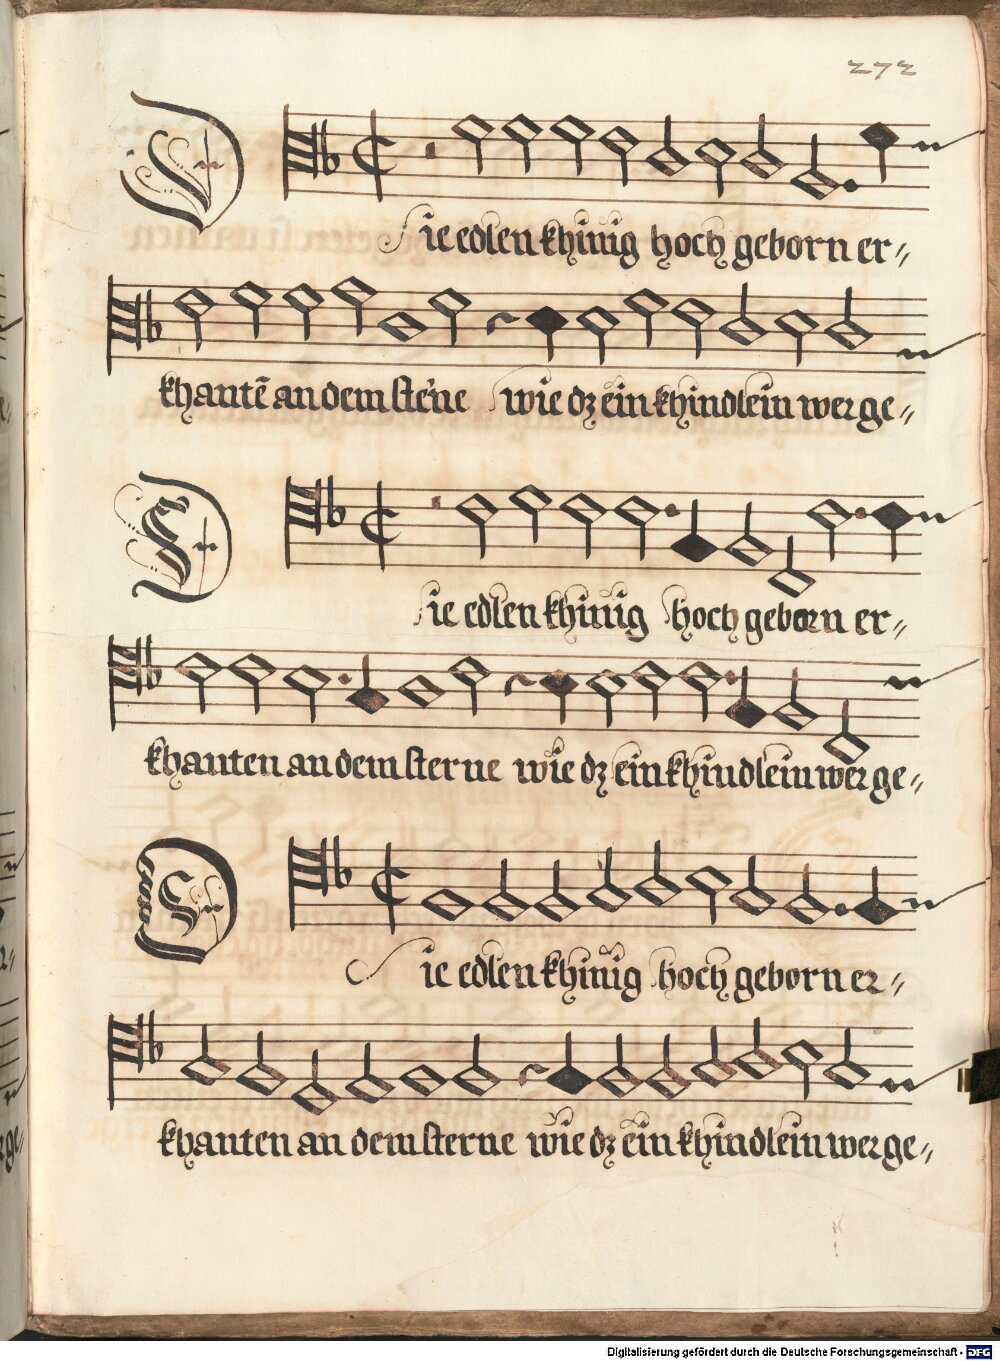 272
Die edlen khinig hoch geborn er〃
khantē an dem sterne wie dz ein khindlein wer ge〃
Die edlen khinig hoch geborn er〃
khanten an dem sterne wie dz ein khindlein wer ge〃
Die edlen khinig hoch geborn er〃
khanten an dem sterne wie dz ein khindlein wer ge〃
Digitalisierung gefördert durch die Deutsche Forschungsgemeinschaft - DFG